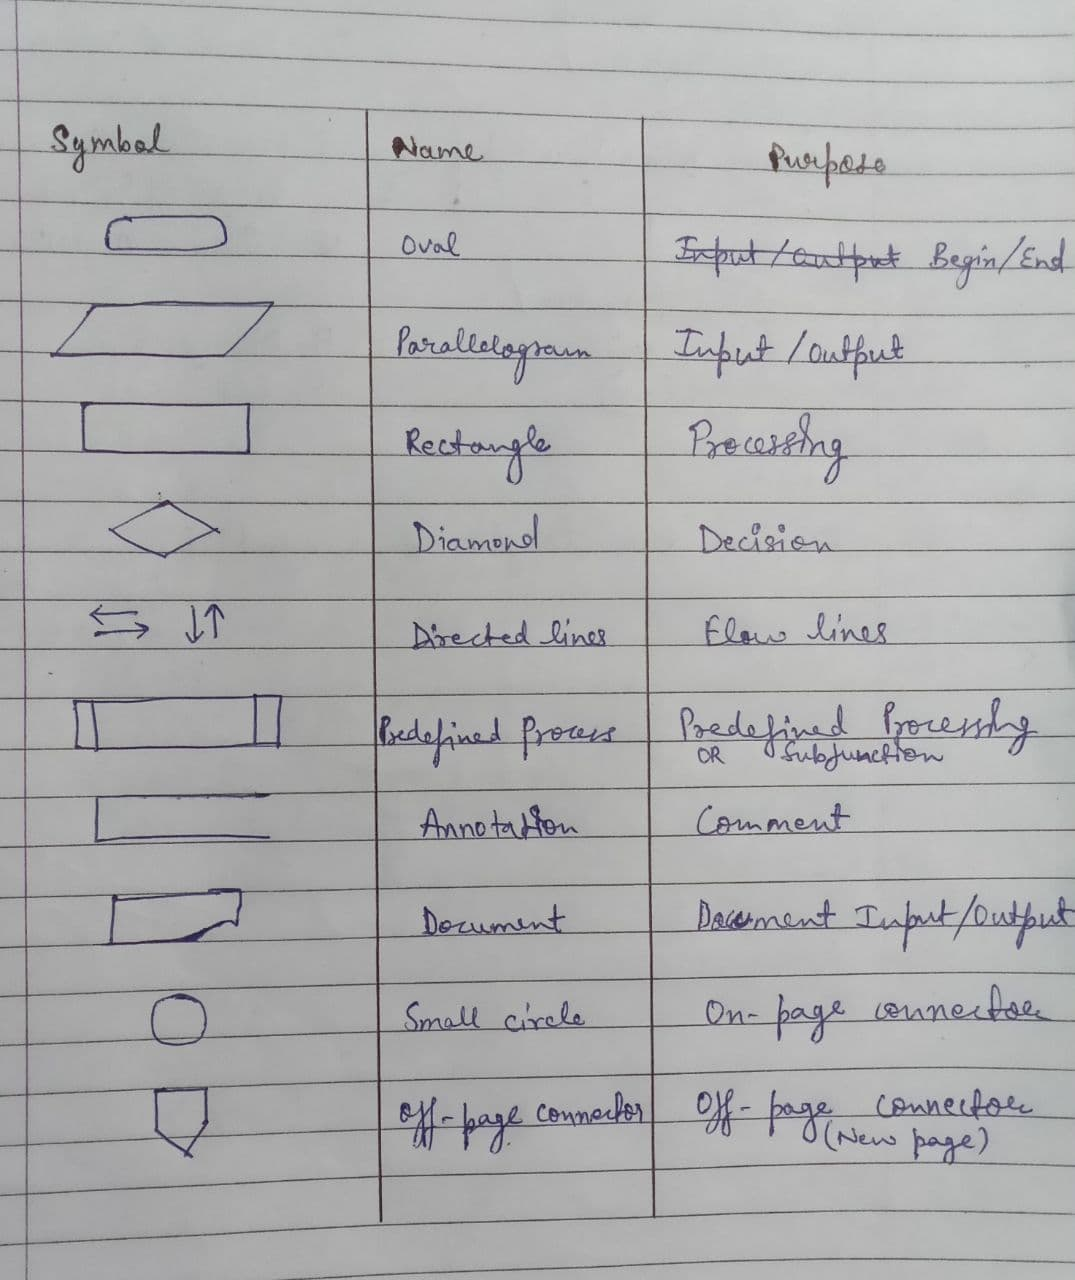 Symbol Name Purpose
Oval Input/Output Begin/End
Parallelogram Input/Output
Rectangle Processing
Diamond Decision
Directed lines Flow lines
Predefined Process Predefined Processing
OR Subfunction
Annotation Comment
Document Document Input/Output
Small circle On-page connector
Off-page connector Off-page connector
(New page)